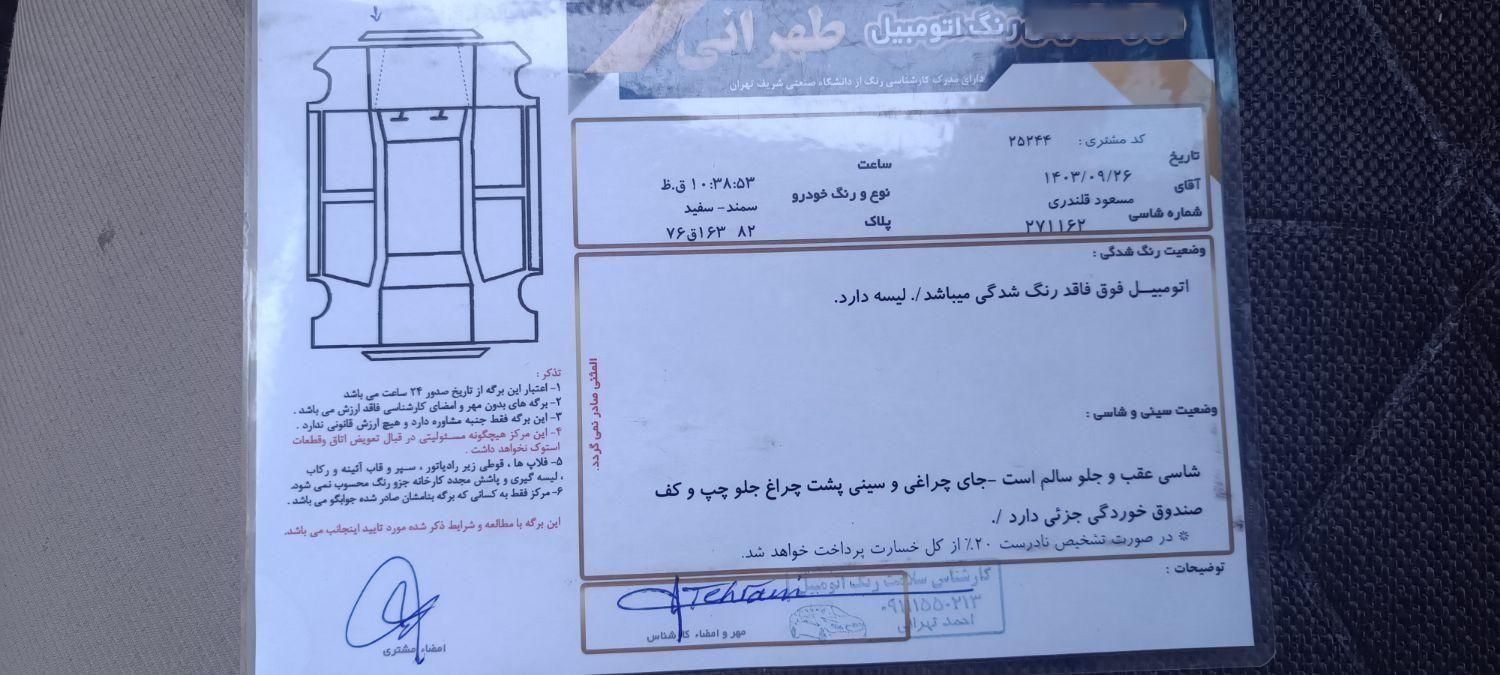 رنگ اتومبیل طهرانی
دارای مدرک کارشناسی رنگ از دانشگاه صنعتی شریف تهران
کد مشتری : ۲۵۲۴۴
تاریخ ۱۴۰۳/۰۹/۲۶
ساعت ۱۰:۳۸:۵۳ ق.ظ
آقای مسعود قلندری
نوع و رنگ خودرو سمند- سفید
شماره شاسی ۲۷۱۱۶۲
پلاک ۸۲ ۱۶۳ق۷۶
وضعیت رنگ شدگی :
اتومبیل فوق فاقد رنگ شدگی میباشد/. لیسه دارد.
وضعیت سینی و شاسی :
شاسی عقب و جلو سالم است -جای چراغی و سینی پشت چراغ جلو چپ و کف
صندوق خوردگی جزئی دارد /.
※ در صورت تشخیص نادرست ۲۰٪ از کل خسارت پرداخت خواهد شد.
توضیحات :
المثنی صادر نمی گردد.
تذکر :
۱- اعتبار این برگه از تاریخ صدور ۲۴ ساعت می باشد
۲- برگه های بدون مهر و امضای کارشناسی فاقد ارزش می باشد .
۳- این برگه فقط جنبه مشاوره دارد و هیچ ارزش قانونی ندارد .
۴- این مرکز هیچگونه مسئولیتی در قبال تعویض اتاق وقطعات
استوک نخواهد داشت .
۵- فلاپ ها ، قوطی زیر رادیاتور ، سپر و قاب آئینه و رکاب
، لیسه گیری و پاشش مجدد کارخانه جزو رنگ محسوب نمی شود.
۶- مرکز فقط به کسانی که برگه بنامشان صادر شده جوابگو می باشد .
این برگه با مطالعه و شرایط ذکر شده مورد تایید اینجانب می باشد.
امضاء مشتری
Tehrani
مهر و امضاء کارشناس
کارشناسی سلامت رنگ اتومبیل
۰۹۱۱۱۵۵۰۲۱۳
احمد تهرانی